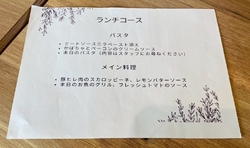 ランチコース
パスタ
• ミートソースニラペースト添え
• かぼちゃとベーコンのクリームソース
• 本日のパスタ (内容はスタッフにお尋ねください)
メイン料理
• 豚ヒレ肉のスカロッピーネ、レモンバターソース
• 本日のお魚のグリル、フレッシュトマトのソース